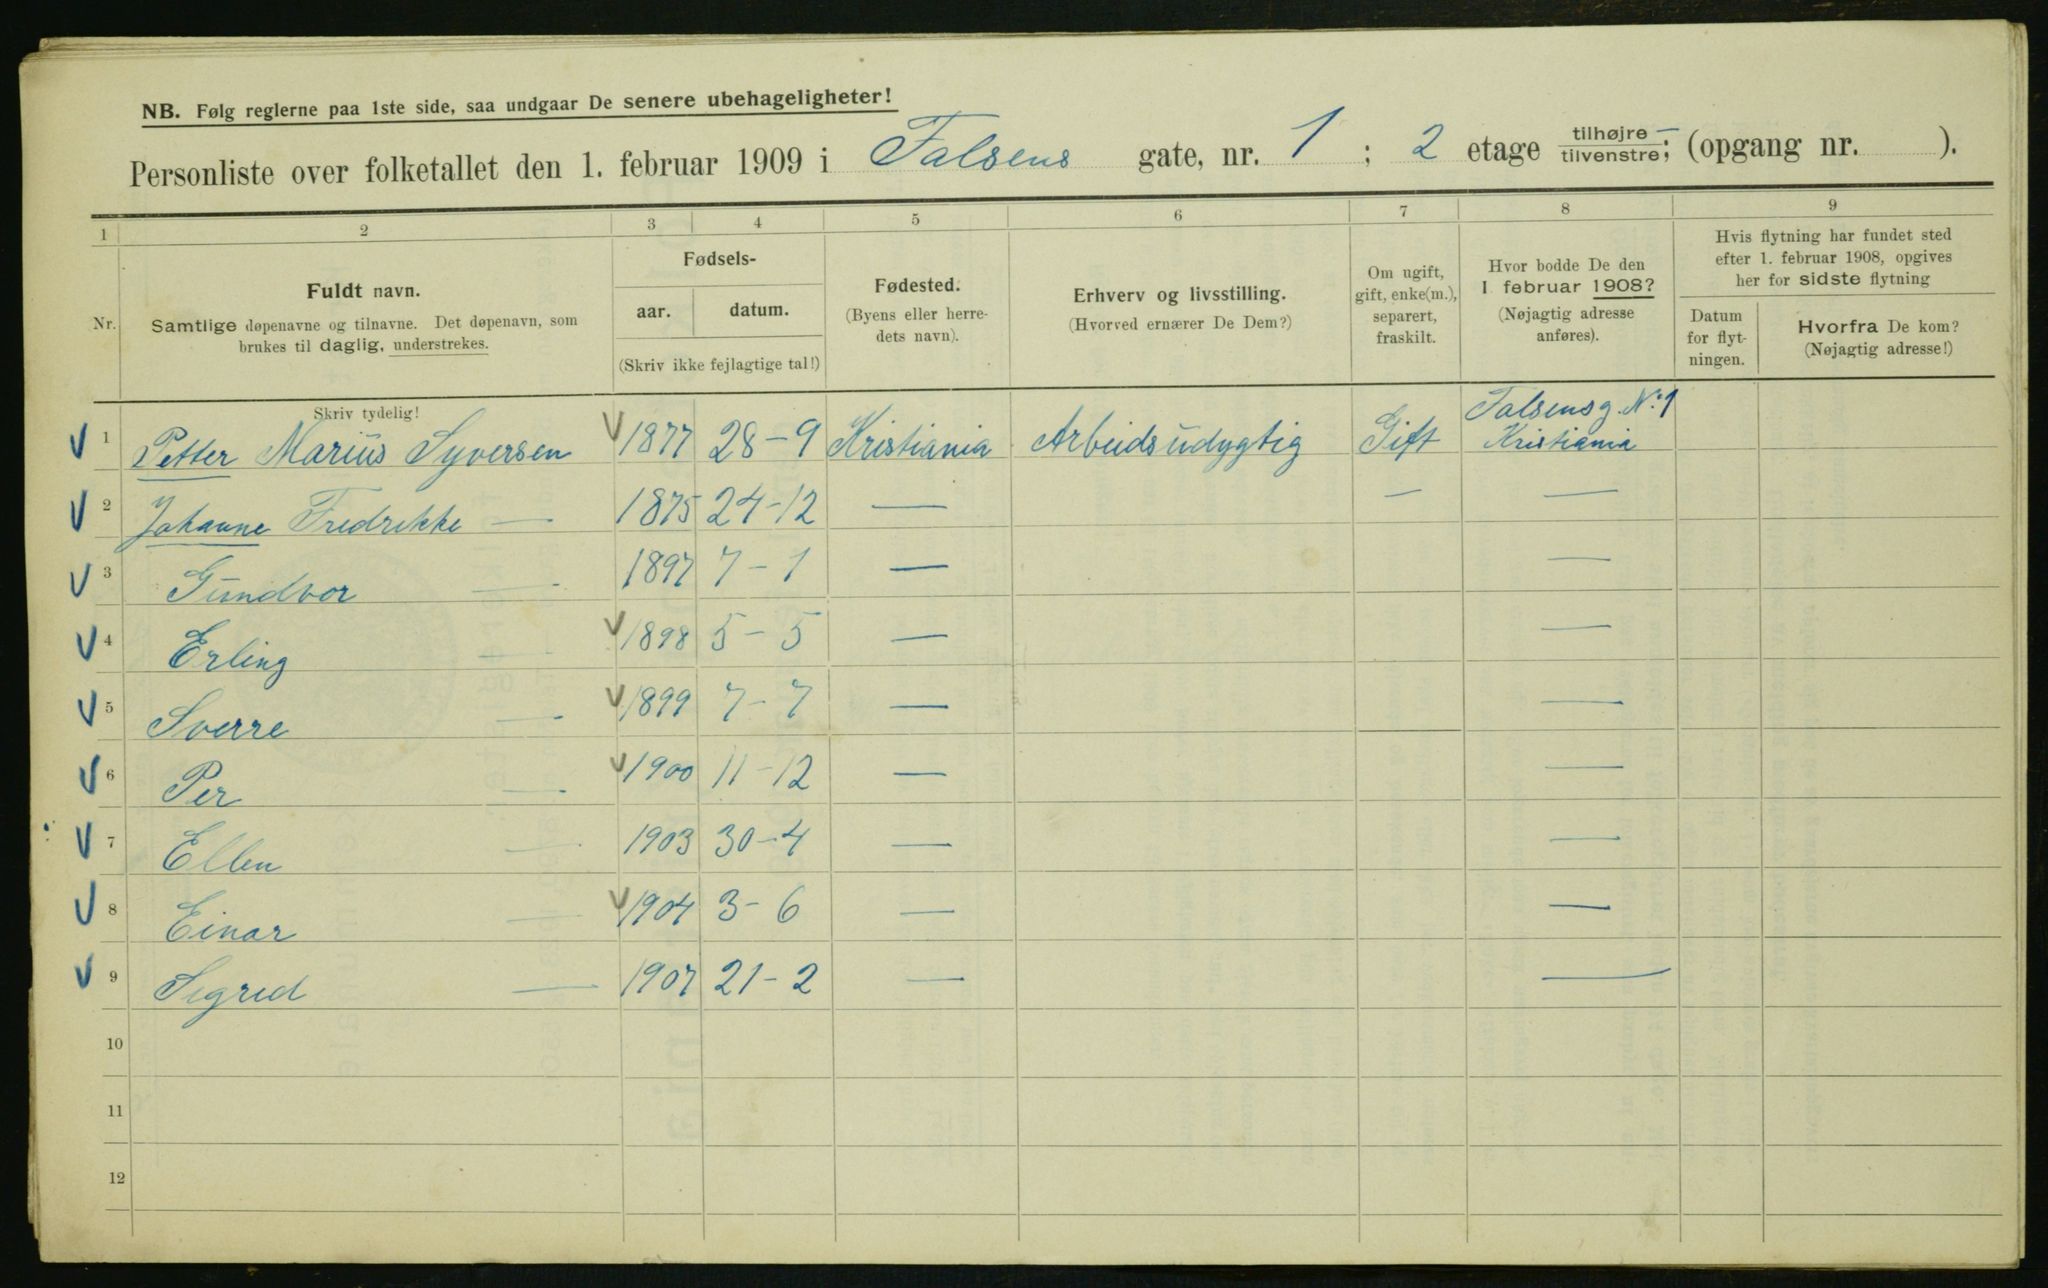 NB. Følg reglerne paa 1ste side, saa undgaar De senere ubehageligheter!
Personliste over folketallet den 1. februar 1909 i Falsens gate, nr. 1 ; 2 etage tilhøjre – tilvenstre; (opgang nr. ).
1 2 3 4 5 6 7 8 9
Nr.
Fuldt navn.
Samtlige døpenavne og tilnavne. Det døpenavn, som
brukes til daglig, understrekes.
Fødsels-
aar. datum.
(Skriv ikke fejlagtige tal!)
Fødested.
(Byens eller herre-
dets navn).
Erhverv og livsstilling.
(Hvorved ernærer De Dem?)
Om ugift,
gift, enke(m.),
separert,
fraskilt.
Hvor bodde De den
1 februar 1908?
(Nøjagtig adresse
anføres).
Hvis flytning har fundet sted
efter 1. februar 1908, opgives
her for sidste flytning
Datum
for flyt-
ningen.
Hvorfra De kom?
(Nøjagtig adresse!)
Skriv tydelig!
1 Petter Marius Syversen 1877 28-9 Kristiania Arbeidsudygtig Gift Falsensg. No 1
Kristiania
2 Johanne Fredrikke — 1875 24-12 — — —
3 Gundvor — 1897 7-1 — —
4 Erling — 1898 5-5 — —
5 Sverre — 1899 7-7 — —
6 Per — 1900 11-12 — —
7 Ellen — 1903 30-4 — —
8 Einar — 1904 3-6 — —
9 Sigrid — 1907 21-2 — —
10
11
12